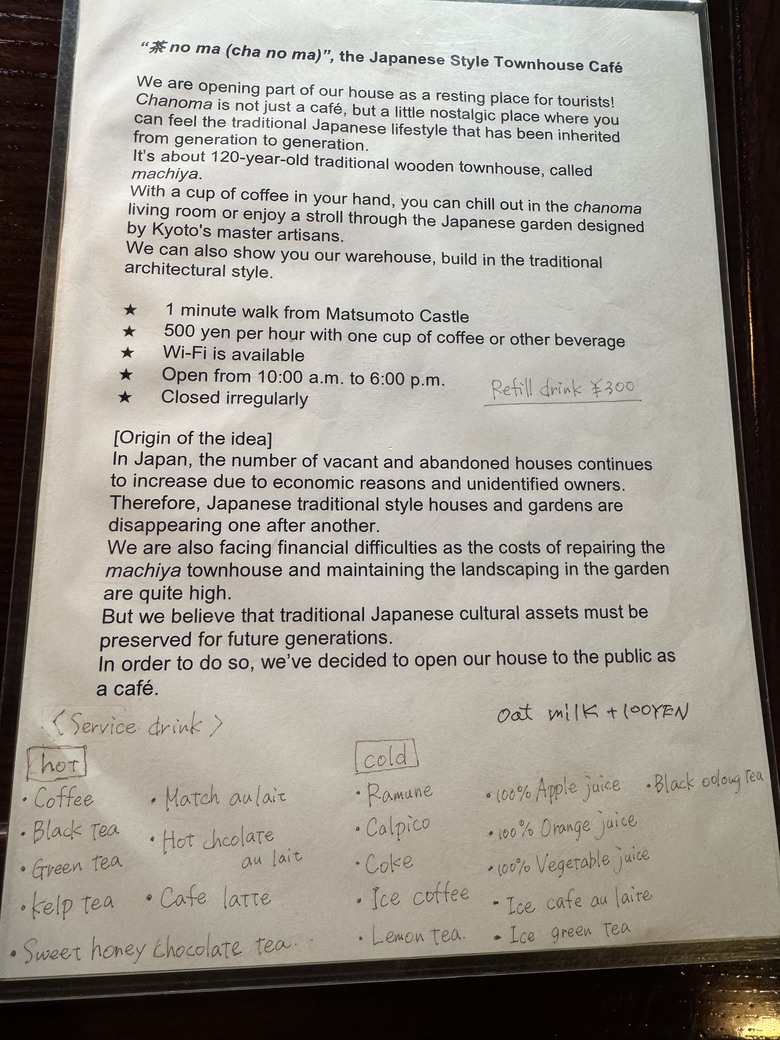 “茶 no ma (cha no ma)”, the Japanese Style Townhouse Café
We are opening part of our house as a resting place for tourists!
Chanoma is not just a café, but a little nostalgic place where you
can feel the traditional Japanese lifestyle that has been inherited
from generation to generation.
It's about 120-year-old traditional wooden townhouse, called
machiya.
With a cup of coffee in your hand, you can chill out in the chanoma
living room or enjoy a stroll through the Japanese garden designed
by Kyoto's master artisans.
We can also show you our warehouse, build in the traditional
architectural style.
★ 1 minute walk from Matsumoto Castle
★ 500 yen per hour with one cup of coffee or other beverage
★ Wi-Fi is available
★ Open from 10:00 a.m. to 6:00 p.m.
★ Closed irregularly
Refill drink ¥300
[Origin of the idea]
In Japan, the number of vacant and abandoned houses continues
to increase due to economic reasons and unidentified owners.
Therefore, Japanese traditional style houses and gardens are
disappearing one after another.
We are also facing financial difficulties as the costs of repairing the
machiya townhouse and maintaining the landscaping in the garden
are quite high.
But we believe that traditional Japanese cultural assets must be
preserved for future generations.
In order to do so, we’ve decided to open our house to the public as
a café.
〈Service drink〉
oat milk +100YEN
hot
・Coffee
・Black tea
・Green tea
・kelp tea
・Sweet honey chocolate tea.
・Match au lait
・Hot chcolate
au lait
・Cafe latte
cold
・Ramune
・Calpico
・Coke
・Ice coffee
・Lemon tea.
・100% Apple juice
・100% Orange juice
・100% Vegetable juice
・Ice cafe au laite
・Ice green tea
・Black oolong tea